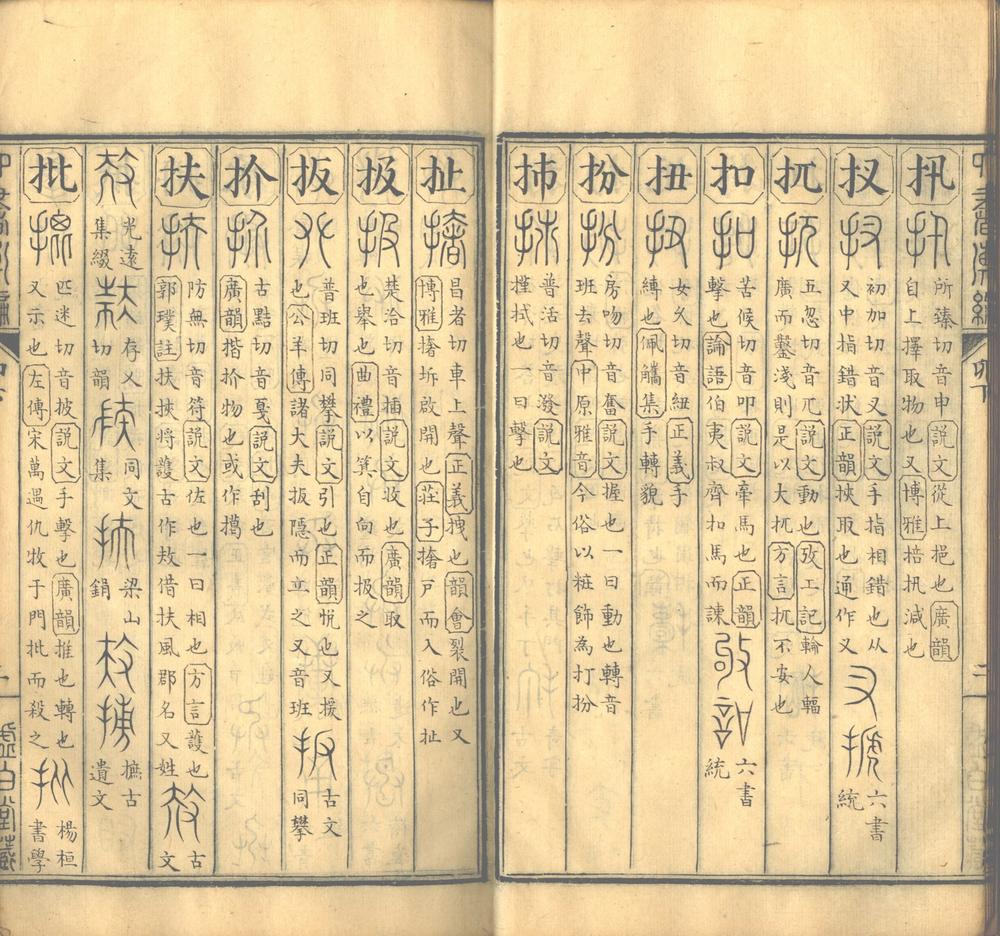 卯下
二
扟
所臻切音申說文從上挹也廣韻
自上擇取物也又博雅掊扟減也
扠
初加切音叉說文手指相錯也从
又中指錯状正韻挾取也通作叉
六書
統
扤
五忽切音兀說文動也攷工記輪人輻
廣而鑿淺則是以大扤方言扤不安也
扣
苦候切音叩說文牽馬也正韻
擊也論語伯夷叔齊扣馬而諌
六書
統
扭
女久切音紐正義手
縛也佩觿集手轉貌
扮
房吻切音奮說文握也一曰動也轉音
班去聲中原雅音今俗以粧飾為打扮
普活切音潑說文
拭也一曰擊也
扯
昌者切車上聲正義拽也韻會裂開也又
博雅撦坼啟開也莊子撦戸而入俗作扯
扱
楚洽切音插說文收也廣韻取
也舉也曲禮以箕自向而扱之
扳
普班切同攀說文引也正韻悅也又援
也公羊傳諸大夫扳隱而立之又音班
古文
同攀
扴
古點切音戛說文刮也
廣韻揩扴物也或作
扶
防無切音符說文佐也一曰相也方言護也
郭璞註扶挾將護古作借扶風郡名又姓
古
文
光遠
集綴
存乂
切韻
同文
集
梁山
鋗
摭古
遺文
批
匹迷切音披說文手擊也廣韻推也轉也
又示也左傳宋萬遇仇牧于門批而殺之
楊桓
書學
虛白堂藏